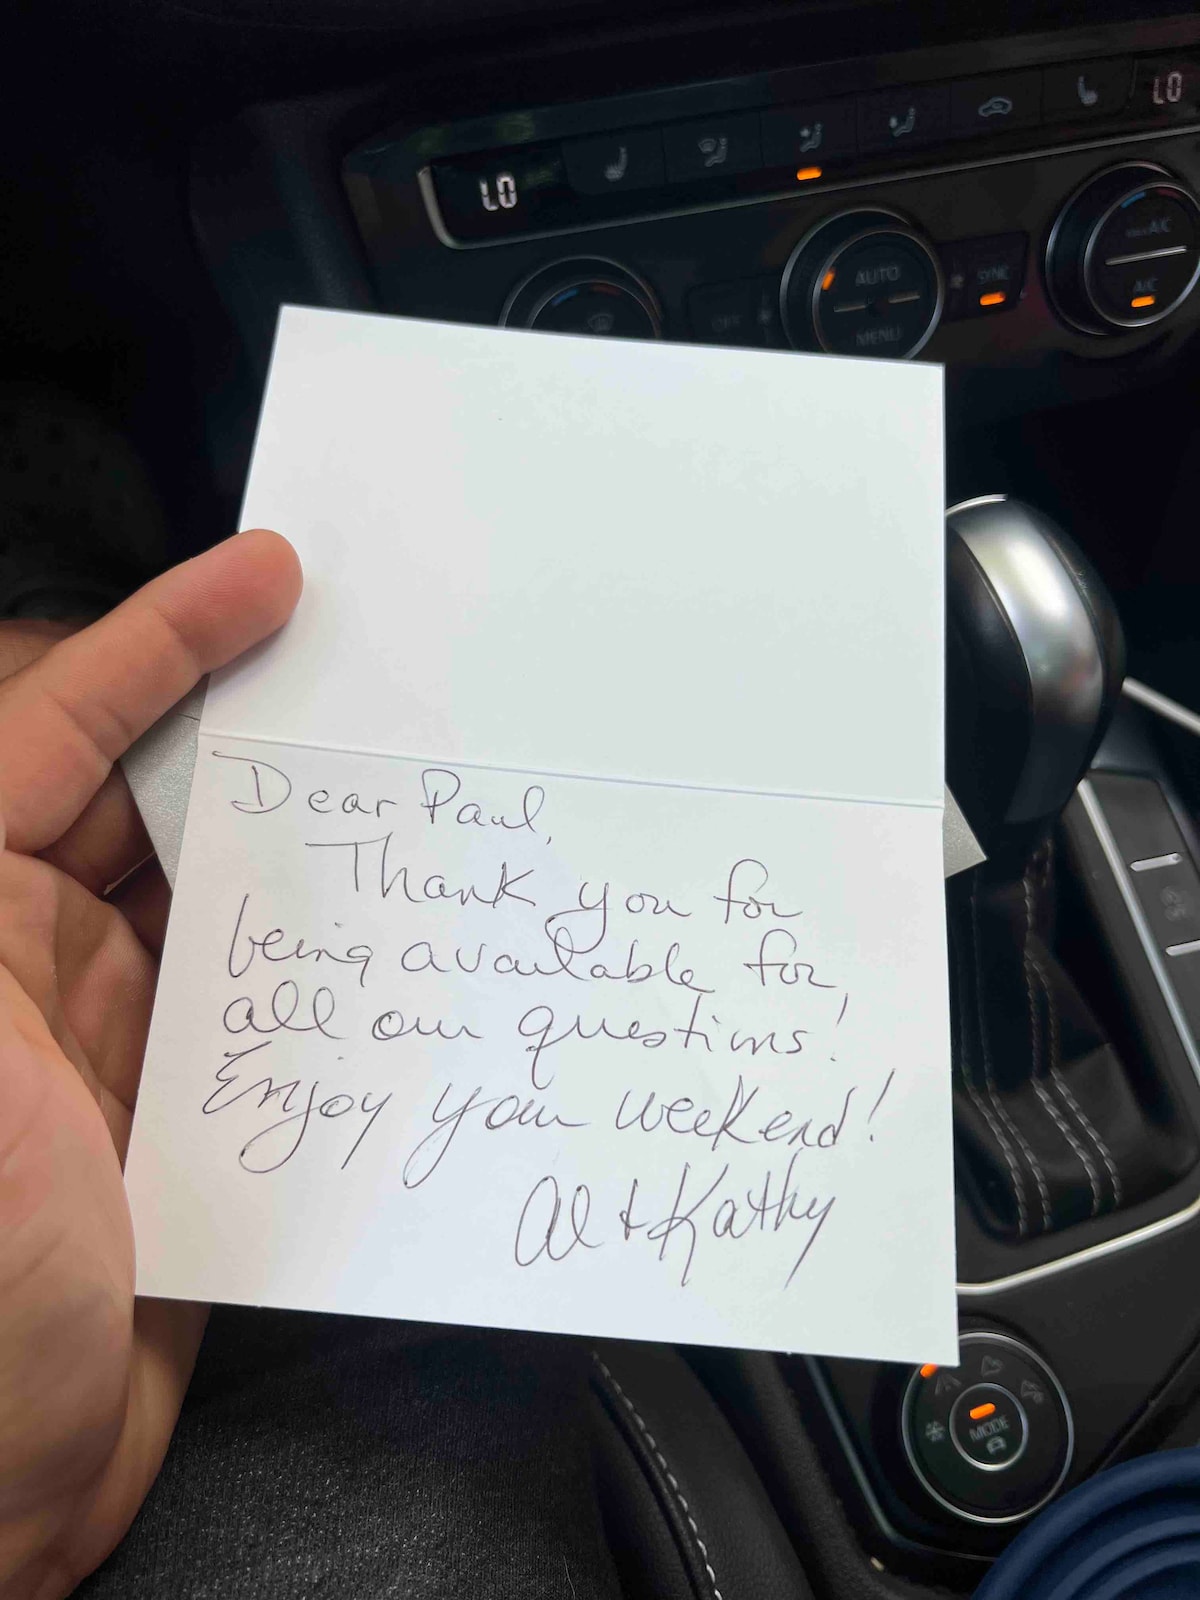 LO
LO
AUTO
SYNC
MENU
OFF
A/C
A/C
Dear Paul,
Thank you for
being available for
all our questions!
Enjoy your weekend!
Al + Kathy
MODE